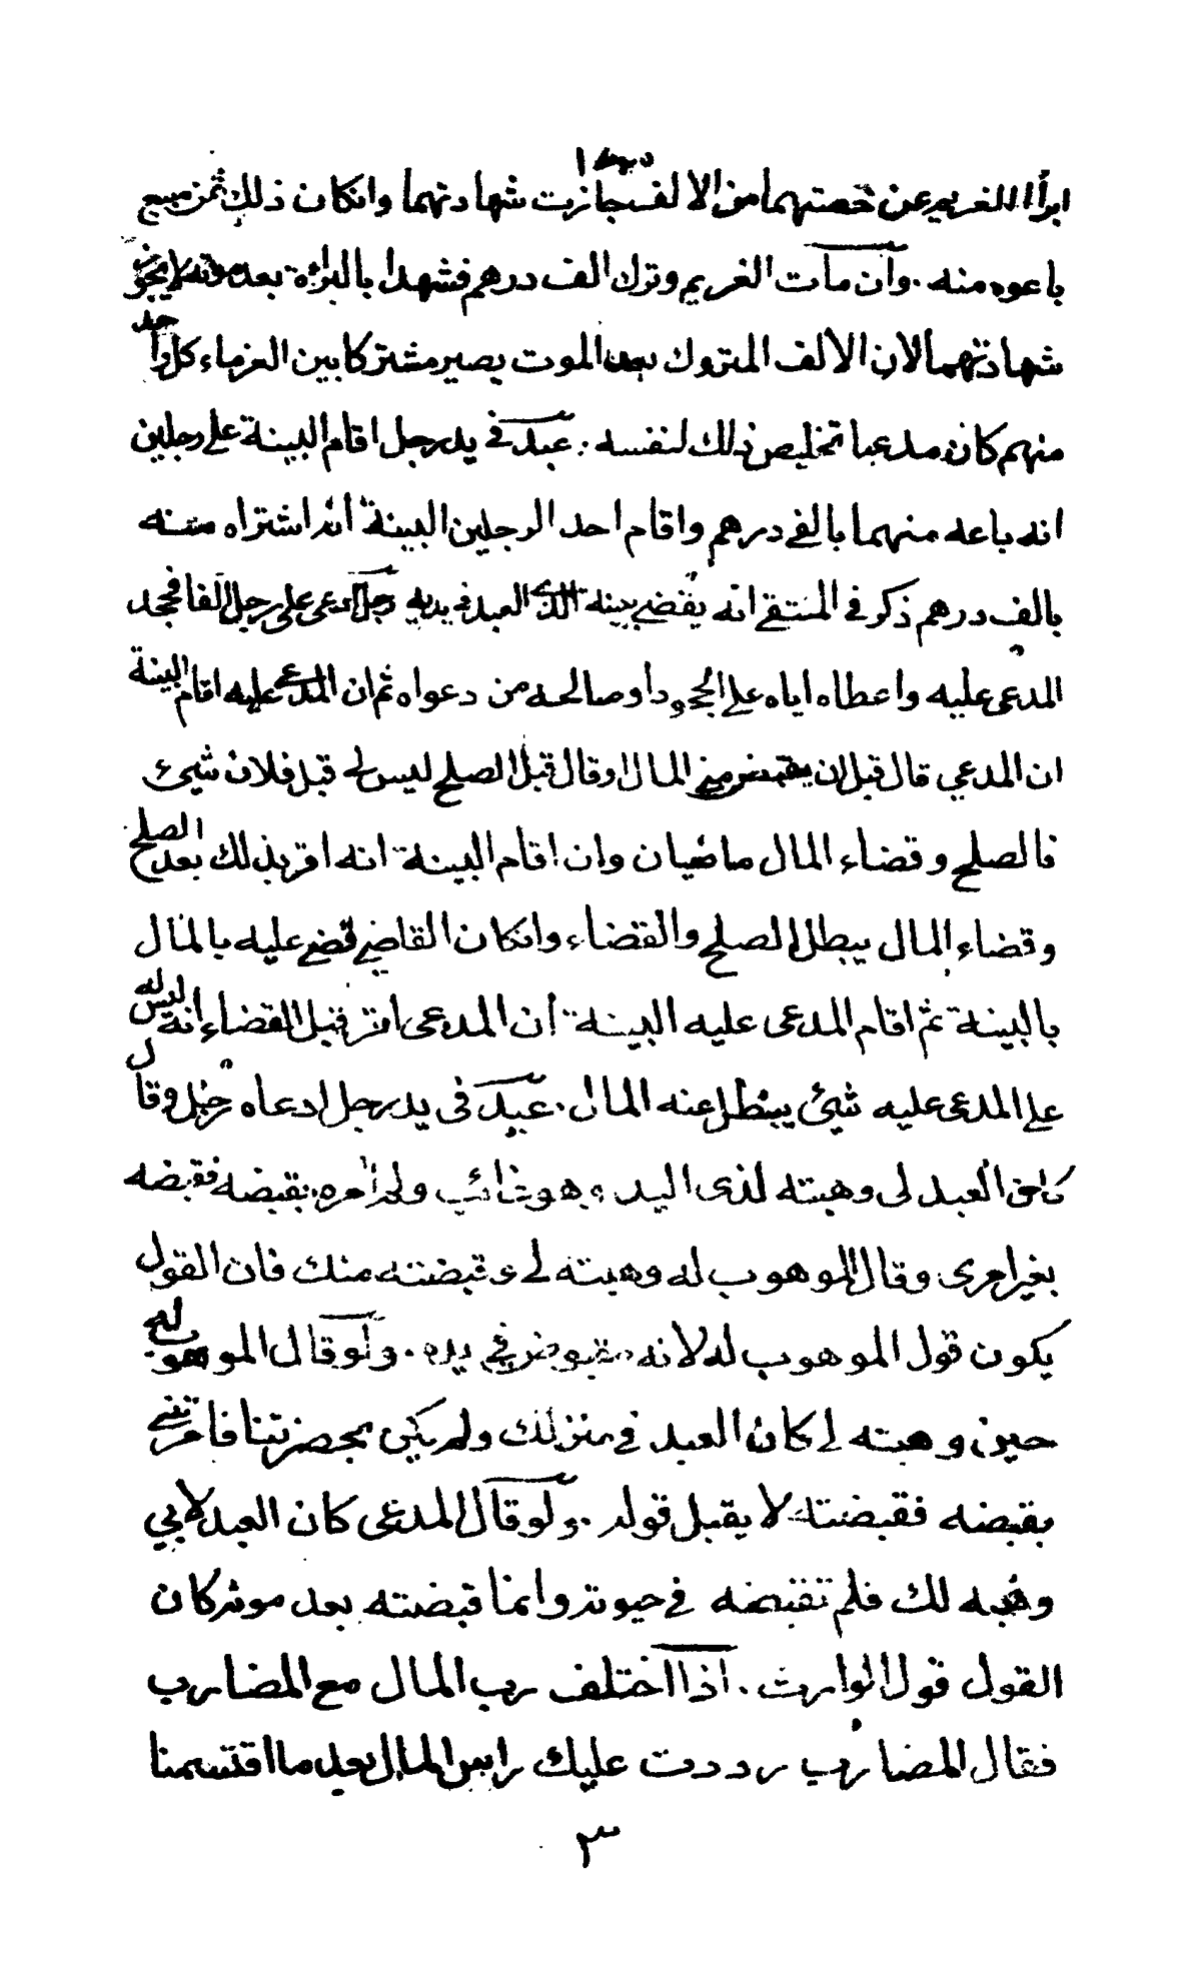 ابرأا الغريم عن حصتهما من الالف جازت شهادتهما وانكان ذلك ثمن مبيع
باعوه منه . وان مات الغريم وترك الف درهم فشهدا بالبراءة بعد موته لا يجوز
شهادتهما لان الالف المتروك بعد الموت يصير مشتركا بين الغرماء كل واحد
منهم كان مدعيا تخليص ذلك لنفسه . عبد في يد رجل اقام البينة على رجلين
انه باعه منهما بالفي درهم واقام احد الرجلين البينة انه اشتراه منه
بالف درهم ذكر في المنتقى انه يقضى ببينة الذي العبد في يديه رجل ادعى على رجل الفا فجحد
المدعى عليه واعطاه اياه على الجحود أو صالحه من دعواه ثم ان المدعى عليه اقام البينة
ان المدعي قال قبل ان يقبض مني المال او قال قبل الصلح ليس لي قبل فلان شيئ
فالصلح وقضاء المال ماضيان وان اقام البينة انه اقر بذلك بعد الصلح
وقضاء المال يبطل الصلح والقضاء وانكان القاضي قضى عليه بالمال
بالبينة ثم اقام المدعى عليه البينة أن المدعى اقر قبل القضاء انه ليس له
على المدعى عليه شيئ يبطل عنه المال . عبد فى يد رجل ادعاه رجل وقال
كان العبد لى وهبته لذى اليد وهو غائب ولم آمره بقبضه فقبضه
بغير امرى وقال الموهوب له وهبته لي وقبضته منك فان القول
يكون قول الموهوب له لانه مقبوض في يده . ولو قال الموهوب له
حين وهبته لي كان العبد في منزلك ولم يكن بحضرتنا فامرتني
بقبضه فقبضته لا يقبل قوله . ولو قال المدعى كان العبد لابي
وهبه لك فلم تقبضه في حيوته وانما قبضته بعد موته كان
القول قول الوارث . اذا اختلف رب المال مع المضارب
فقال المضارب رددت عليك راس المال بعد ما اقتسمنا
٣